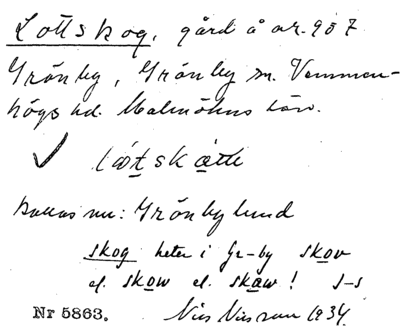 Lottskog, gård å nr. 9 o 7
Grönby, Grönby sn. Vemmen-
högs hd. Malmöhus län.
✓ låtskått
kallas nu: Grönbylund
skog heter i Gr-by skov
el. skow el. skåw! J-s
Nr 5863. Nils Nilsson 1934.